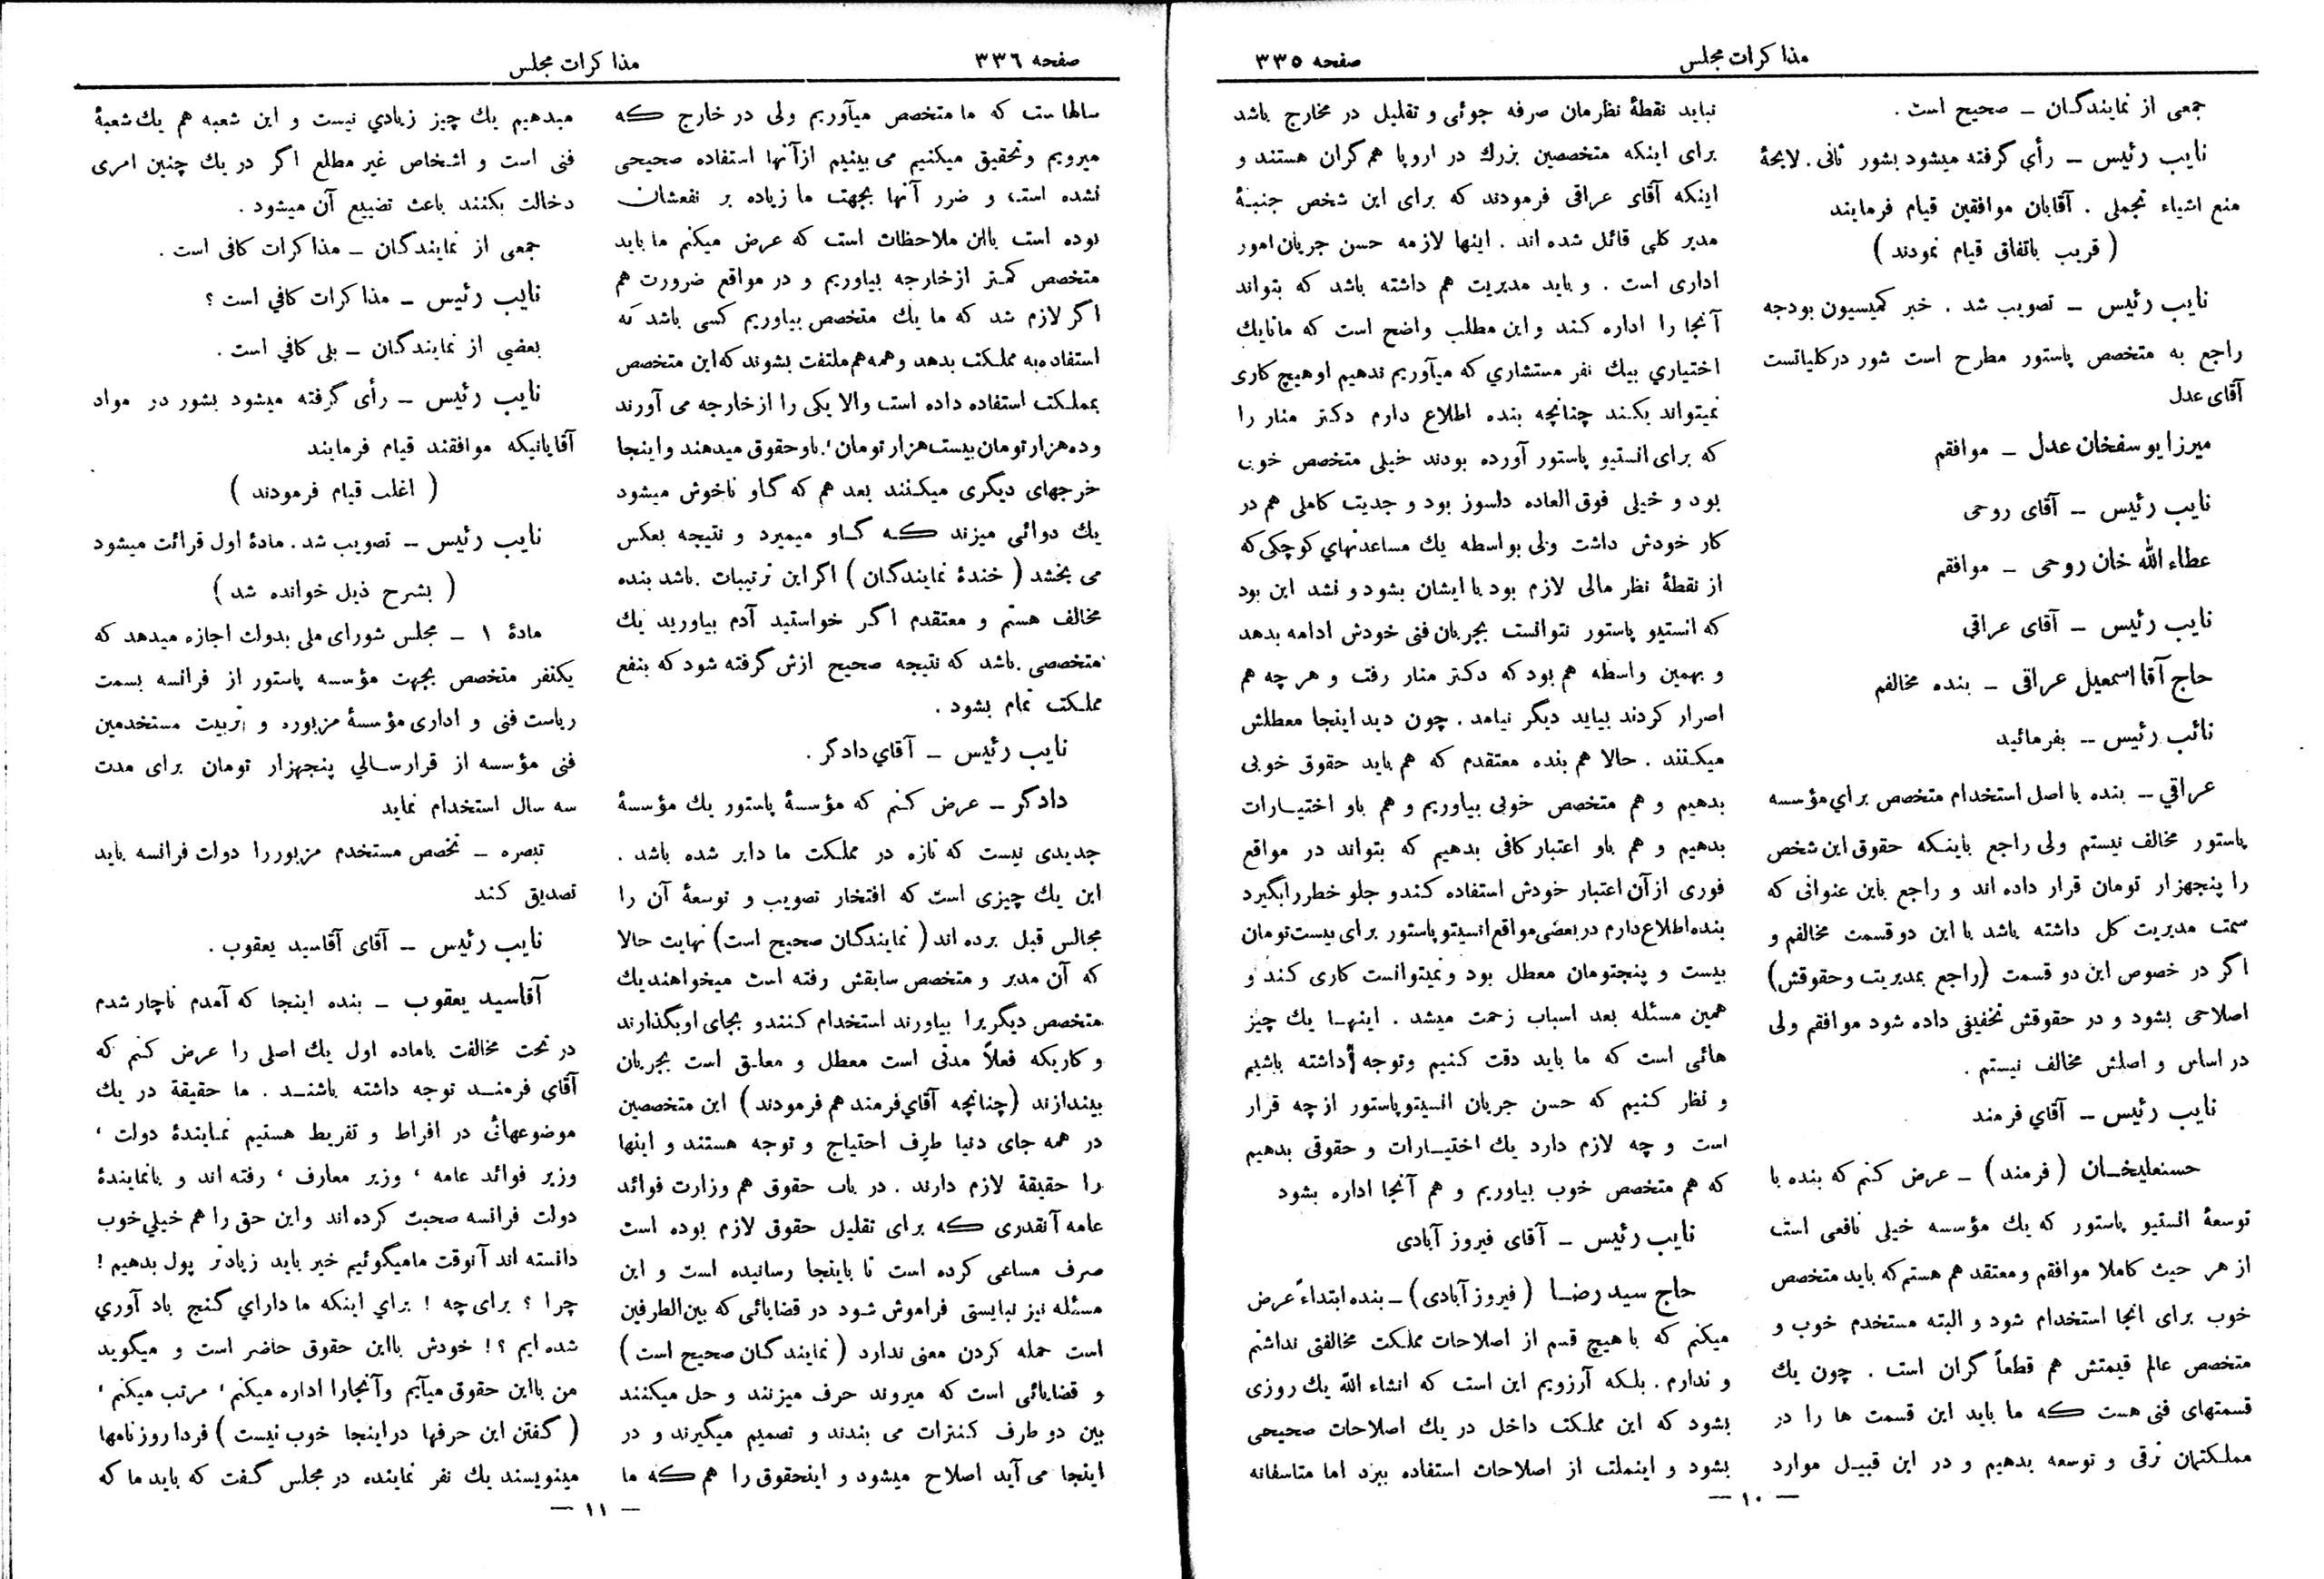 مذاکرات مجلس
صفحه ۳۳۵
جمعی از نمایندگان ــ صحیح است .
نایب رئیس ــ رأی گرفته میشود بشور ثانی . لایحهٔ
منع اشیاء تجملی . آقایان موافقین قیام فرمایند
( قریب باتفاق قیام نمودند )
نایب رئیس ــ تصویب شد . خبر کمیسیون بودجه
راجع به متخصص پاستور مطرح است شور در کلیاتست
آقای عدل
میرزا یوسفخان عدل ــ موافقم
نایب رئیس ــ آقای روحی
عطاءالله خان روحی ــ موافقم
نایب رئیس ــ آقای عراقی
حاج آقا اسمعیل عراقی ــ بنده مخالفم
نائب رئیس ــ بفرمائید
عراقي ــ بنده با اصل استخدام متخصص براي مؤسسه
پاستور مخالف نیستم ولی راجع باینکه حقوق این شخص
را پنجهزار تومان قرار داده اند و راجع باین عنوانی که
سمت مدیریت کل داشته باشد با این دو قسمت مخالفم و
اگر در خصوص این دو قسمت (راجع بمدیریت وحقوقش)
اصلاحی بشود و در حقوقش تخفیفی داده شود موافقم ولی
در اساس و اصلش مخالف نیستم .
نایب رئیس ــ آقاي فرمند
حسنعلیخان ( فرمند ) ــ عرض کنم که بنده با
توسعهٔ انستیو پاستور که یك مؤسسه خیلی نافعی است
از هر حیث کاملا موافقم و معتقد هم هستم که باید متخصص
خوب برای انجا استخدام شود و البته مستخدم خوب و
متخصص عالم قیمتش هم قطعاً گران است . چون یك
قسمتهای فنی هست که ما باید این قسمت ها را در
مملکتمان ترقی و توسعه بدهیم و در این قبیل موارد
نباید نقطهٔ نظرمان صرفه جوئی و تقلیل در مخارج باشد
برای اینکه متخصصین بزرك در اروپا هم گران هستند و
اینکه آقای عراقی فرمودند که برای این شخص جنبهٔ
مدیر کلی قائل شده اند . اینها لازمه حسن جریان امور
اداری است . و باید مدیریت هم داشته باشد که بتواند
آنجا را اداره کند و این مطلب واضح است که ما تا یك
اختیاري بیك نفر مستشاري که میآوریم ندهیم او هیچ کاری
نمیتواند بکند چنانچه بنده اطلاع دارم دکتر منار را
که برای انستیو پاستور آورده بودند خیلی متخصص خوب
بود و خیلی فوق العاده دلسوز بود و جدیت کاملی هم در
کار خودش داشت ولی بواسطه یك مساعدتهاي کوچکی که
از نقطهٔ نظر مالی لازم بود با ایشان بشود و نشد این بود
که انستیو پاستور نتوانست بجریان فنی خودش ادامه بدهد
و بهمین واسطه هم بود که دکتر منار رفت و هر چه هم
اصرار کردند بیاید دیگر نیامد . چون دید اینجا معطلش
میکنند . حالا هم بنده معتقدم که هم باید حقوق خوبی
بدهیم و هم متخصص خوبی بیاوریم و هم باو اختیارات
بدهیم و هم باو اعتبار کافی بدهیم که بتواند در مواقع
فوری از آن اعتبار خودش استفاده کند و جلو خطر را بگیرد
بنده اطلاع دارم در بعضی مواقع انسیتو پاستور برای بیست تومان
بیست و پنجتومان معطل بود و نمیتوانست کاری کند و
همین مسئله بعد اسباب زحمت میشد . اینها یك چیز
هائی است که ما باید دقت کنیم وتوجه داشته باشیم
و نظر کنیم که حسن جریان انسیتو پاستور از چه قرار
است و چه لازم دارد یك اختیارات و حقوقی بدهیم
که هم متخصص خوب بیاوریم و هم آنجا اداره بشود
نایب رئیس ــ آقای فیروز آبادی
حاج سید رضا ( فیروز آبادی ) ــ بنده ابتداءً عرض
میکنم که با هیچ قسم از اصلاحات مملکت مخالفتی نداشتم
و ندارم . بلکه آرزویم این است که انشاء الله یك روزی
بشود که این مملکت داخل در یك اصلاحات صحیحی
بشود و اینملت از اصلاحات استفاده ببرد اما متاسفانه
— ۱۰ —
صفحه ۳۳۶
مذاکرات مجلس
سالها ست که ما متخصص میآوریم ولی در خارج که
میرویم و تحقیق میکنیم می بینیم از آنها استفاده صحیحی
نشده است و ضرر آنها بجهت ما زیاده بر نفعشان
بوده است باین ملاحظات است که عرض میکنم ما باید
متخصص کمتر از خارجه بیاوریم و در مواقع ضرورت هم
اگر لازم شد که ما یك متخصص بیاوریم کسی باشد که
استفاده به مملکت بدهد و همه هم ملتفت بشوند که این متخصص
بمملکت استفاده داده است والا یکی را از خارجه می آورند
و ده هزار تومان بیست هزار تومان ، باو حقوق میدهند و اینجا
خرجهای دیگری میکنند بعد هم که گاو ناخوش میشود
یك دوائی میزند که گاو میمیرد و نتیجه بعکس
می بخشد ( خندهٔ نمایندگان ) اگر این ترتیبات باشد بنده
مخالف هستم و معتقدم اگر خواستید آدم بیاورید یك
متخصصی باشد که نتیجه صحیح ازش گرفته شود که بنفع
مملکت تمام بشود .
نایب رئیس ــ آقاي دادگر .
دادگر ــ عرض کنم که مؤسسهٔ پاستور یك مؤسسهٔ
جدیدی نیست که تازه در مملکت ما دایر شده باشد .
این یك چیزی است که افتخار تصویب و توسعهٔ آن را
مجالس قبل برده اند ( نمایندگان صحیح است ) نهایت حالا
که آن مدیر و متخصص سابقش رفته است میخواهند یك
متخصص دیگریرا بیاورند استخدام کنند و بجای او بگذارند
و کاریکه فعلاً مدتی است معطل و معلق است بجریان
بیندازند (چنانچه آقاي فرمند هم فرمودند ) این متخصصین
در همه جای دنیا طرف احتیاج و توجه هستند و اینها
را حقیقة لازم دارند . در باب حقوق هم وزارت فوائد
عامه آنقدری که برای تقلیل حقوق لازم بوده است
صرف مساعی کرده است تا باینجا رسانیده است و این
مسئله نیز نبایستی فراموش شود در قضایائی که بین الطرفین
است حمله کردن معنی ندارد ( نمایندگان صحیح است )
و قضایائی است که میروند حرف میزنند و حل میکنند
بین دو طرف کنترات می بندند و تصمیم میگیرند و در
اینجا می آید اصلاح میشود و اینحقوق را هم که ما
میدهیم یك چیز زیادي نیست و این شعبه هم یك شعبهٔ
فنی است و اشخاص غیر مطلع اگر در یك چنین امری
دخالت بکنند باعث تضییع آن میشود .
جمعی از نمایندگان ــ مذاکرات کافی است .
نایب رئیس ــ مذاکرات کافي است ؟
بعضي از نمایندگان ــ بلی کافي است .
نایب رئیس ــ رأی گرفته میشود بشور در مواد
آقایانیکه موافقند قیام فرمایند
( اغلب قیام فرمودند )
نایب رئیس ــ تصویب شد . مادهٔ اول قرائت میشود
( بشرح ذیل خوانده شد )
مادهٔ ۱ ــ مجلس شورای ملی بدولت اجازه میدهد که
یکنفر متخصص بجهت مؤسسه پاستور از فرانسه بسمت
ریاست فنی و اداری مؤسسهٔ مزبوره و تربیت مستخدمین
فنی مؤسسه از قرار سالي پنجهزار تومان برای مدت
سه سال استخدام نماید
تبصره ــ تخصص مستخدم مزبور را دولت فرانسه باید
تصدیق کند
نایب رئیس ــ آقای آقاسید یعقوب .
آقاسید یعقوب ــ بنده اینجا که آمدم ناچار شدم
در تحت مخالفت باماده اول یك اصلی را عرض کنم که
آقاي فرمند توجه داشته باشند . ما حقیقة در یك
موضوعهائی در افراط و تفریط هستیم نمایندهٔ دولت ،
وزیر فوائد عامه ، وزیر معارف ، رفته اند و بانمایندهٔ
دولت فرانسه صحبت کرده اند و این حق را هم خیلي خوب
دانسته اند آنوقت مامیگوئیم خیر باید زیادتر پول بدهیم !
چرا ؟ برای چه ! براي اینکه ما داراي گنج باد آوري
شده ایم ؟ ! خودش بااین حقوق حاضر است و میگوید
من بااین حقوق میآیم وآنجارا اداره میکنم ، مرتب میکنم ،
( گفتن این حرفها در اینجا خوب نیست ) فردا روزنامها
مینویسند یك نفر نماینده در مجلس گفت که باید ما که
— ۱۱ —